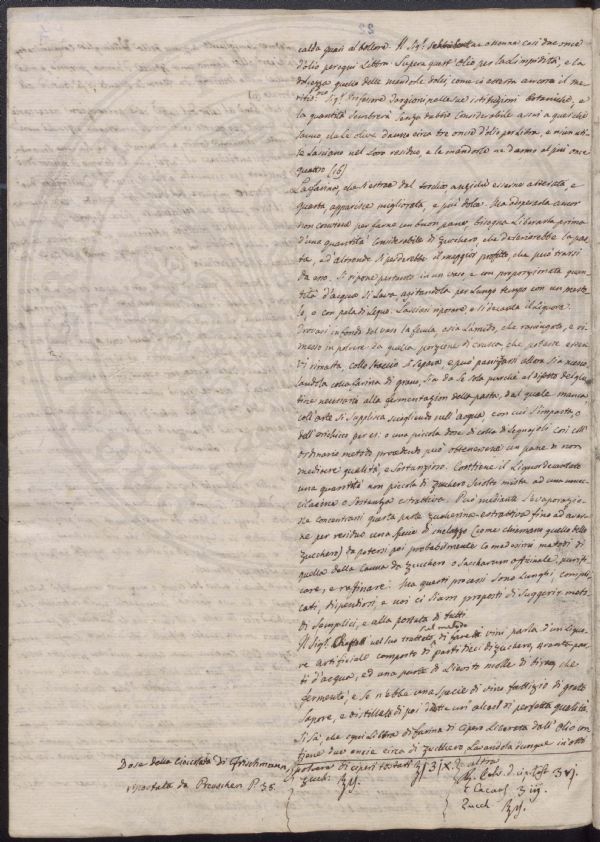 22
calda quasi al bollore. Il Sig.r ne ottenne così due once
d'olio per ogni Libbra. Supera quest'olio per la limpidità, e la
dolcezza quello delle mandorle dolci, come ci attesta ancora il me
rit.o Sig.r Professore Targioni nelle sue istituzioni botaniche, e
la quantità sembrerà senza dubbio considerabile assai a quei che
sanno che le olive danno circa tre once d'olio per Libra, e non
lasciano nel loro residuo, e le mandorle ne danno al più once
quattro (16)
La farina, che si estrae dal torchio anzichè esserne alterata, e
guasta, apparisce migliorata, e più dolce. Ma disperata ancor
non conviene per farne un buon pane, bisogna liberarla prima
d'una quantità considerabile di zucchero, che deteriorebbe la pas
ta, ed altronde si perderebbe il maggior profitto, che può trarsi
da esso. Si ripone pertanto in un vaso, e con proporzionata quan
tità d'acqua si lava, agitandola per lungo tempo con un pestel
lo, o con pala di legno. Lasciasi riposare, e si decanta il liquore.
Trovasi in fondo del vaso la fecula, osia l'amido, che rasciugato, e ri
messo in polvere da quella porzione di crusca, che potesse esser
vi rimasta, collo staccio si separa, e può panizzarsi allora sia mesco
landola colla farina di grano, sia da se sola purchè al difetto del glu
tine necessario alla fermentazione della pasta, dal quale manca
coll'arte si supplisca sciogliendo nell'acqua, con cui s'impasta,
dell'orichicco per es. o una piccola dose di colla di Legnajoli così coll'
ordinario metodo procedendo può ottenersene un pane di non
mediocre qualità, e sostanzioso. Contiene il liquor decantato
una quantità non piccola di zucchero sciolto mista ad una muc
cilagine o sostanza estrattiva. Può mediante l'evaporazio
ne concentrarsi questa parte zuccherina estrattiva fino ad aver
ne per residuo una specie di melazzo (come chiamano quello dello
zucchero) da potersi poi probabilmente co medesimi metodi di
quello della Canna da zucchero o Saccharum officinale, purifi
care, e rafinare. Ma questi processi sono lunghi, compli
cati, dispendiosi, e noi ci siam proposti di suggerir meto
di semplici, e alla portata di tutti.
sul metodo
Il Sig.r Chaptall nel suo trattato di fare i vini parla d'un liquo
re artificiale composto di parti dieci di zucchero, quaranta par
ti d'acqua, ed una parte di Lievito molle di birra, che
fermentò, e se n'ebbe una specie di vino fattizio di grato
sapore, e distillato di poi dette un alcool di perfetta qualità
Si sà che ogni Libbra di farina di cipero liberata dall'olio con
tiene due once circa di zucchero. Lavandola dunque in otti
Dose della Cioccolata di Grischmann,
riportata da Preuschen P. 38.
polvere di ciperi tostati
Zucch.
altra
Cacao
Zucch